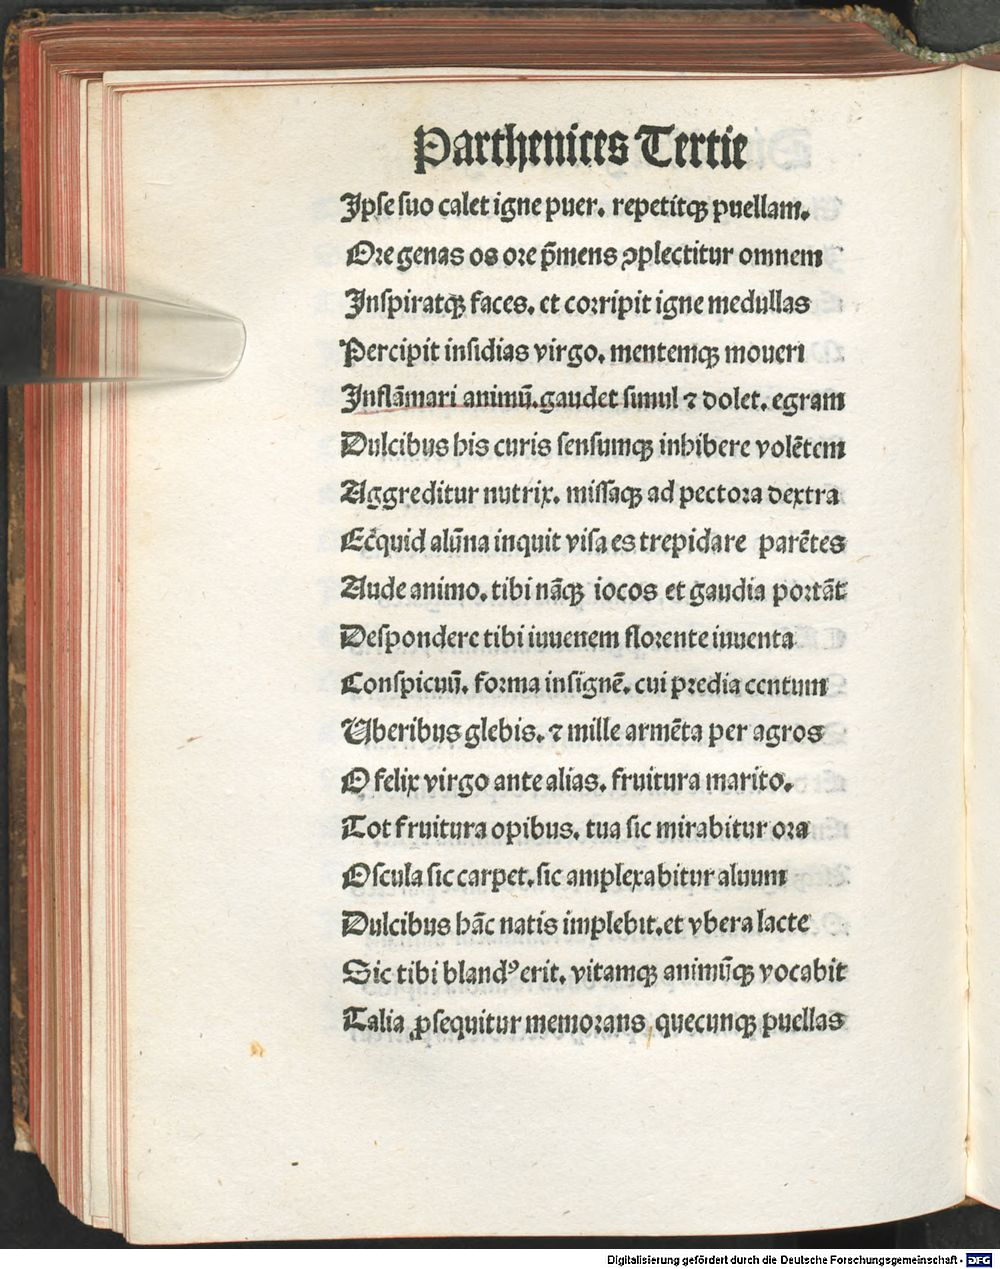 Parthenices Tertie
Ipse suo calet igne puer. repetitqꝫ puellam.
Ore genas os ore p̄mens ꝯplectitur omnem
Inspiratqꝫ faces. et corripit igne medullas
Percipit insidias virgo. mentemqꝫ moueri
Inflāmari animū.gaudet simul ⁊ dolet. egram
Dulcibus his curis sensumqꝫ inhibere volētem
Aggreditur nutrix. missaqꝫ ad pectora dextra
Ec̄quid alūna inquit visa es trepidare parētes
Aude animo. tibi nāqꝫ iocos et gaudia portāt
Despondere tibi iuuenem florente iuuenta
Conspicuū. forma insignē. cui predia centum
Uberibus glebis. ⁊ mille armēta per agros
O felix virgo ante alias. fruitura marito.
Tot fruitura opibus. tua sic mirabitur ora
Oscula sic carpet. sic amplexabitur aluum
Dulcibus hāc natis implebit.et vbera lacte
Sic tibi blandꝰ erit. vitamqꝫ animūqꝫ vocabit
Talia ꝓsequitur memorans quecunqꝫ puellas
Digitalisierung gefördert durch die Deutsche Forschungsgemeinschaft - DFG